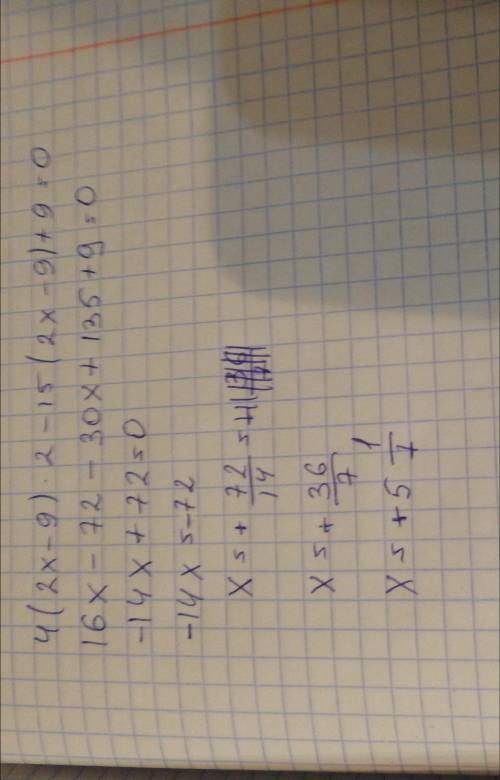 4(2x-9)·2-15(2x-9)+9=0
16x-72-30x+135+9=0
-14x+72=0
-14x=-72
x=+72/14=+
x=+36/7
x=+5 1/7